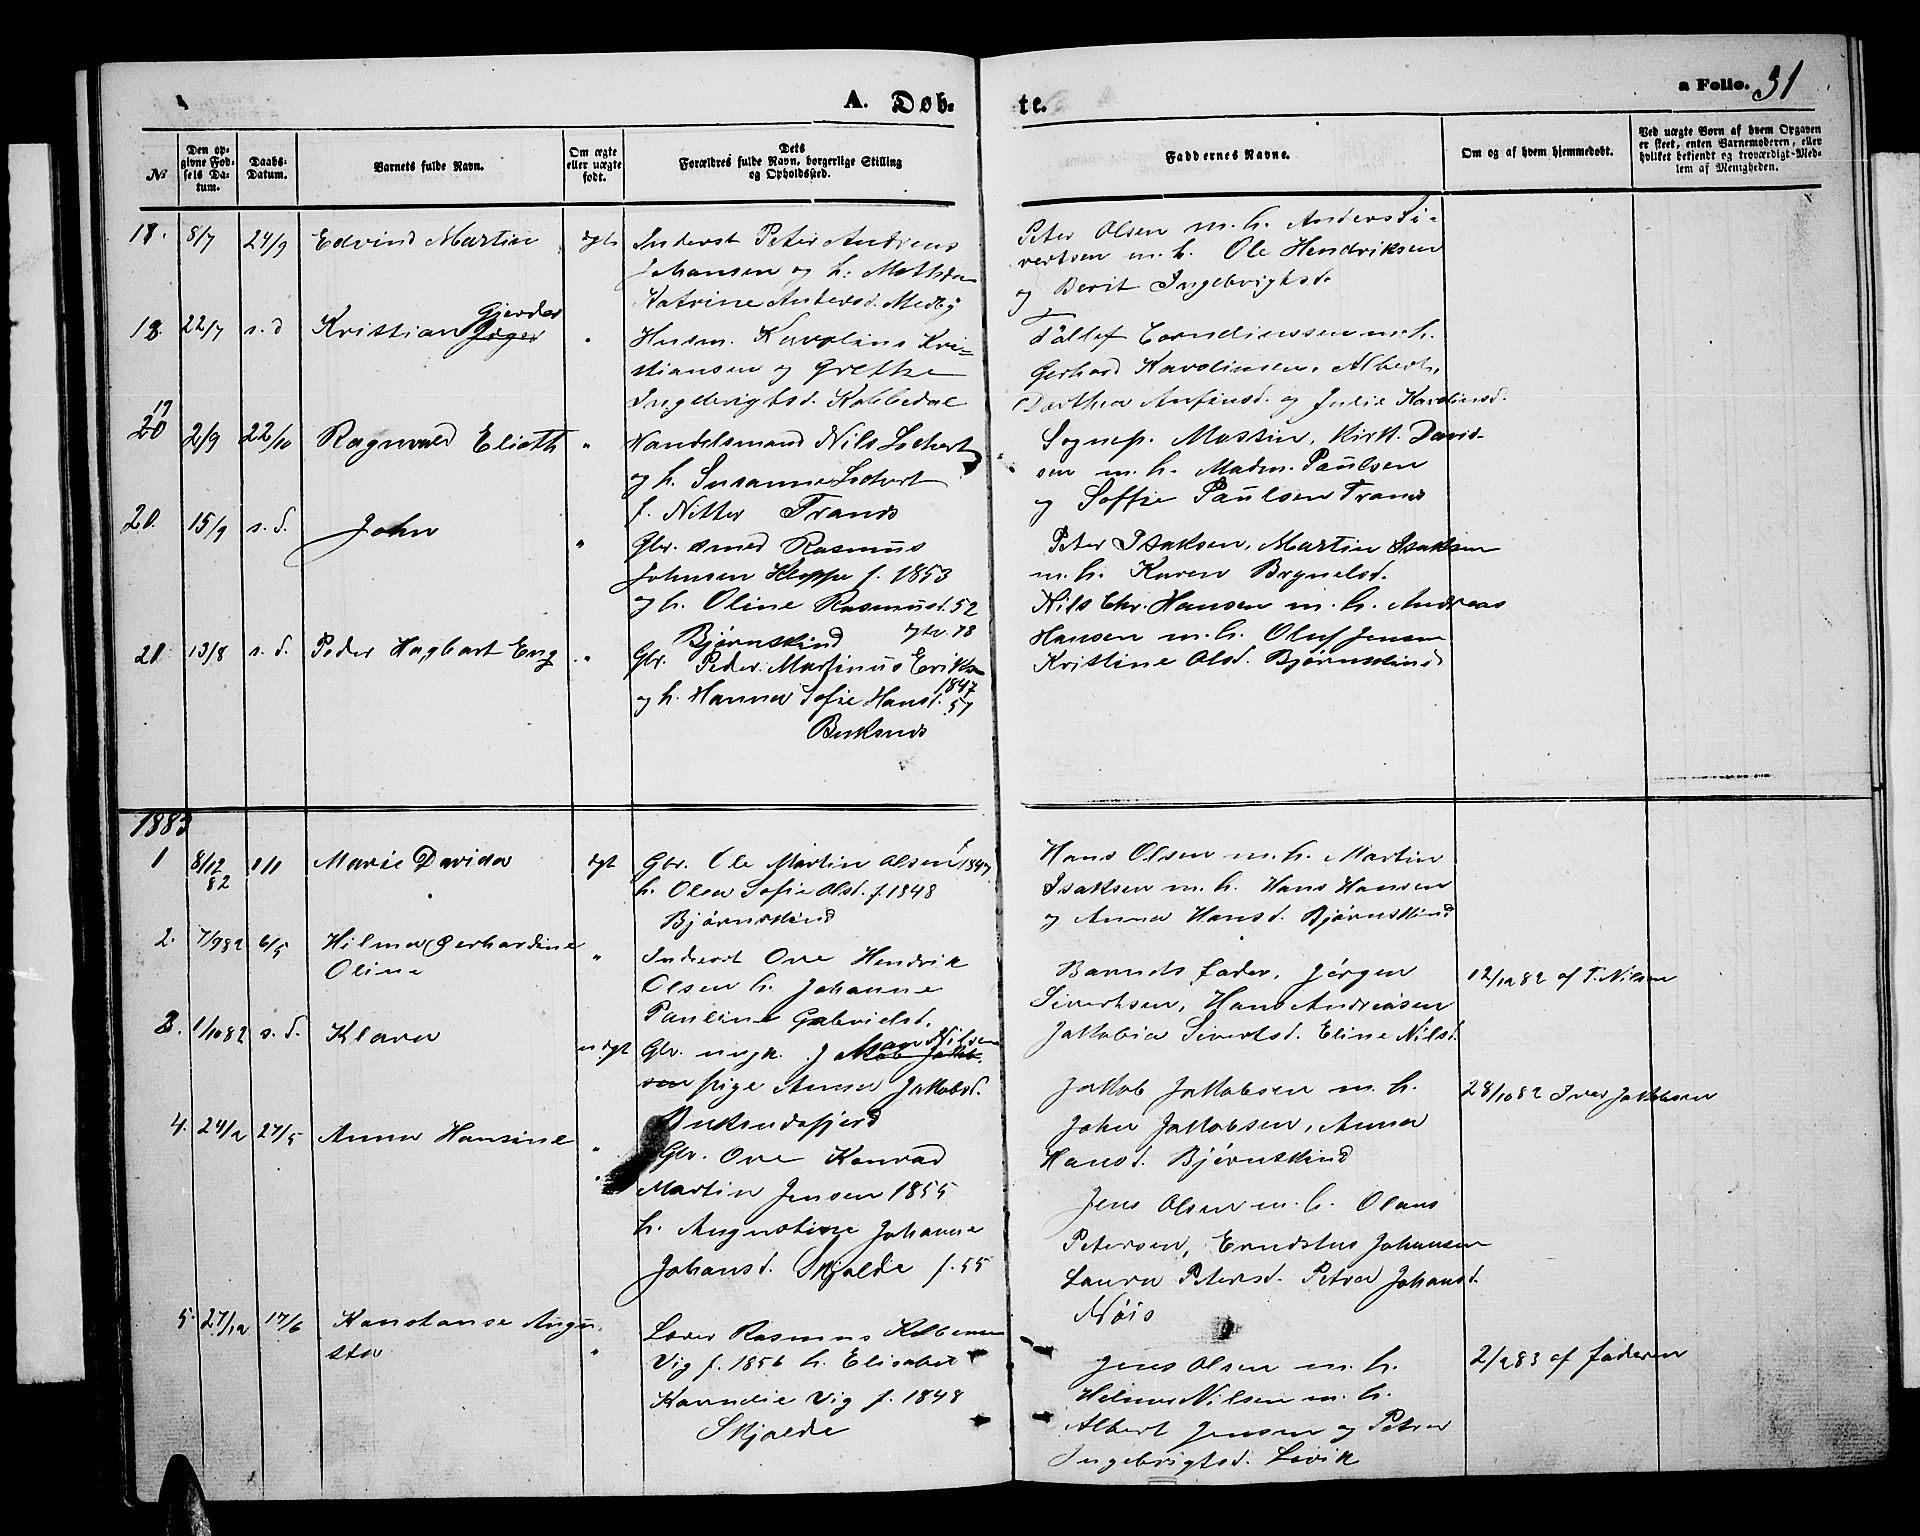 A. Døb-
te.
a Folio. 31
No
Den opgivne Fødsels Datum.
Daabs-Datum.
Barnets fulde Navn.
Om ægte eller uægte født.
Dets Forældres fulde Navn, borgerlige Stilling og Opholdssted.
Faddernes Navne.
Om og af hvem hjemmedøbt.
Ved uægte Børn af hvem Opgaven er skeet, enten Barnemoderen, eller hvilket bekjendt og troværdigt Medlem af Menigheden.
18. 8/7 24/9 Edvind Martin ægte
Inderst Peter Andreas
Johansen og h. Mathea
Katrine Andersd. Medby
Peter Olsen m. h. Anders Si-
vertsen m. h. Ole Hendriksen
og Berit Ingebrigtsd.
18. 22/7 s. d Kristian Jæger Gjerder "
Husm. Karolius Kri-
stiansen og Grethe
Ingebrigtsd. Kobbedal
Tollef Corneliussen m. h.
Gerhard Karolinsen, Albert,
Dorthea Anfinsd. og Julie Karolinsd.
19
20 2/9 22/10 Ragnvald Elioth "
Handelsmand Nils Lockert
og h. Susanne Lockert
f. Nitter Tranes
Sognep. Mossin, Kirks. David-
sen m. h. Madm. Paulsen
og Soffie Paulsen Tranes
20. 15/9 s. d. John "
Gbr. smed Rasmus
Johnsen Kloppe f. 1853
og h. Oline Rasmusd. 52
Bjørnskind gtv. 78
Peter Isaksen, Martin Isaksen
m. h. Karen Brynelsd.
21 13/8 s. d. Peder Hagbart Eng "
Gbr. Peder Martinus Erikse
1847
og h. Hanna Sofie Hansd. 57
Buksnes
Nils Chr. Hansen m. h. Andreas
Hansen m. h. Oluf Jensen
Kristine Olsd. Bjørnskind
1883
1 8/12 82 1/1 Marie Davida ægt
Gbr. Ole Martin Olsen f. 1847
h. Olea Sofie Olsd. f. 1848
Bjørnskind
Hans Olsen m. h. Martin
Isaksen m. h. Hans Hansen
og Anna Hansd. Bjørnskind
2. 7/9 82 6/5 Hilma Gerhardine
Oline "
Inderst Ove Hendrik
Olsen h. Johanne
Pauline Gabrielsd.
Barnets fader, Jørgen
Sivertsen, Hans Andreasen
Jakobia Sivertsd. Eline Nilsd.
12/12 82 af T. Nilsen
3. 1/10 82 s. d. Klara uægt
Gbr. ungk. Jakob Jakob-
sen pige Anna Jakobsd.
Buksnesfjord
Jakob Jakobsen m. h.
John Jakobsen, Anna
Hansd. Bjørnskind
28/10 82 Iver Jakobsen
4. 24/2 27/5 Anna Hansine "
Gbr. Ove Konrad
Martin Jensen 1855
h. Augustine Johanne
Johansd. Skjolde f. 55
Jens Olsen m. h. Olaus
Petersen, Erndstus Johansen
Laura Petersd. Petra Johansd.
Nøis
5. 27/12 17/6 Konstanse Augu-
sta "
Lærer Rasmus Kolbensen
Vig f. 1856 h. Elisabet
Karndie Vig f. 1848
Skjolde
Jens Olsen m. h.
Helmer Nilsen m. h.
Albert Jensen og Petra
Ingebrigtsd. Lovik
2/2 83 af faderen